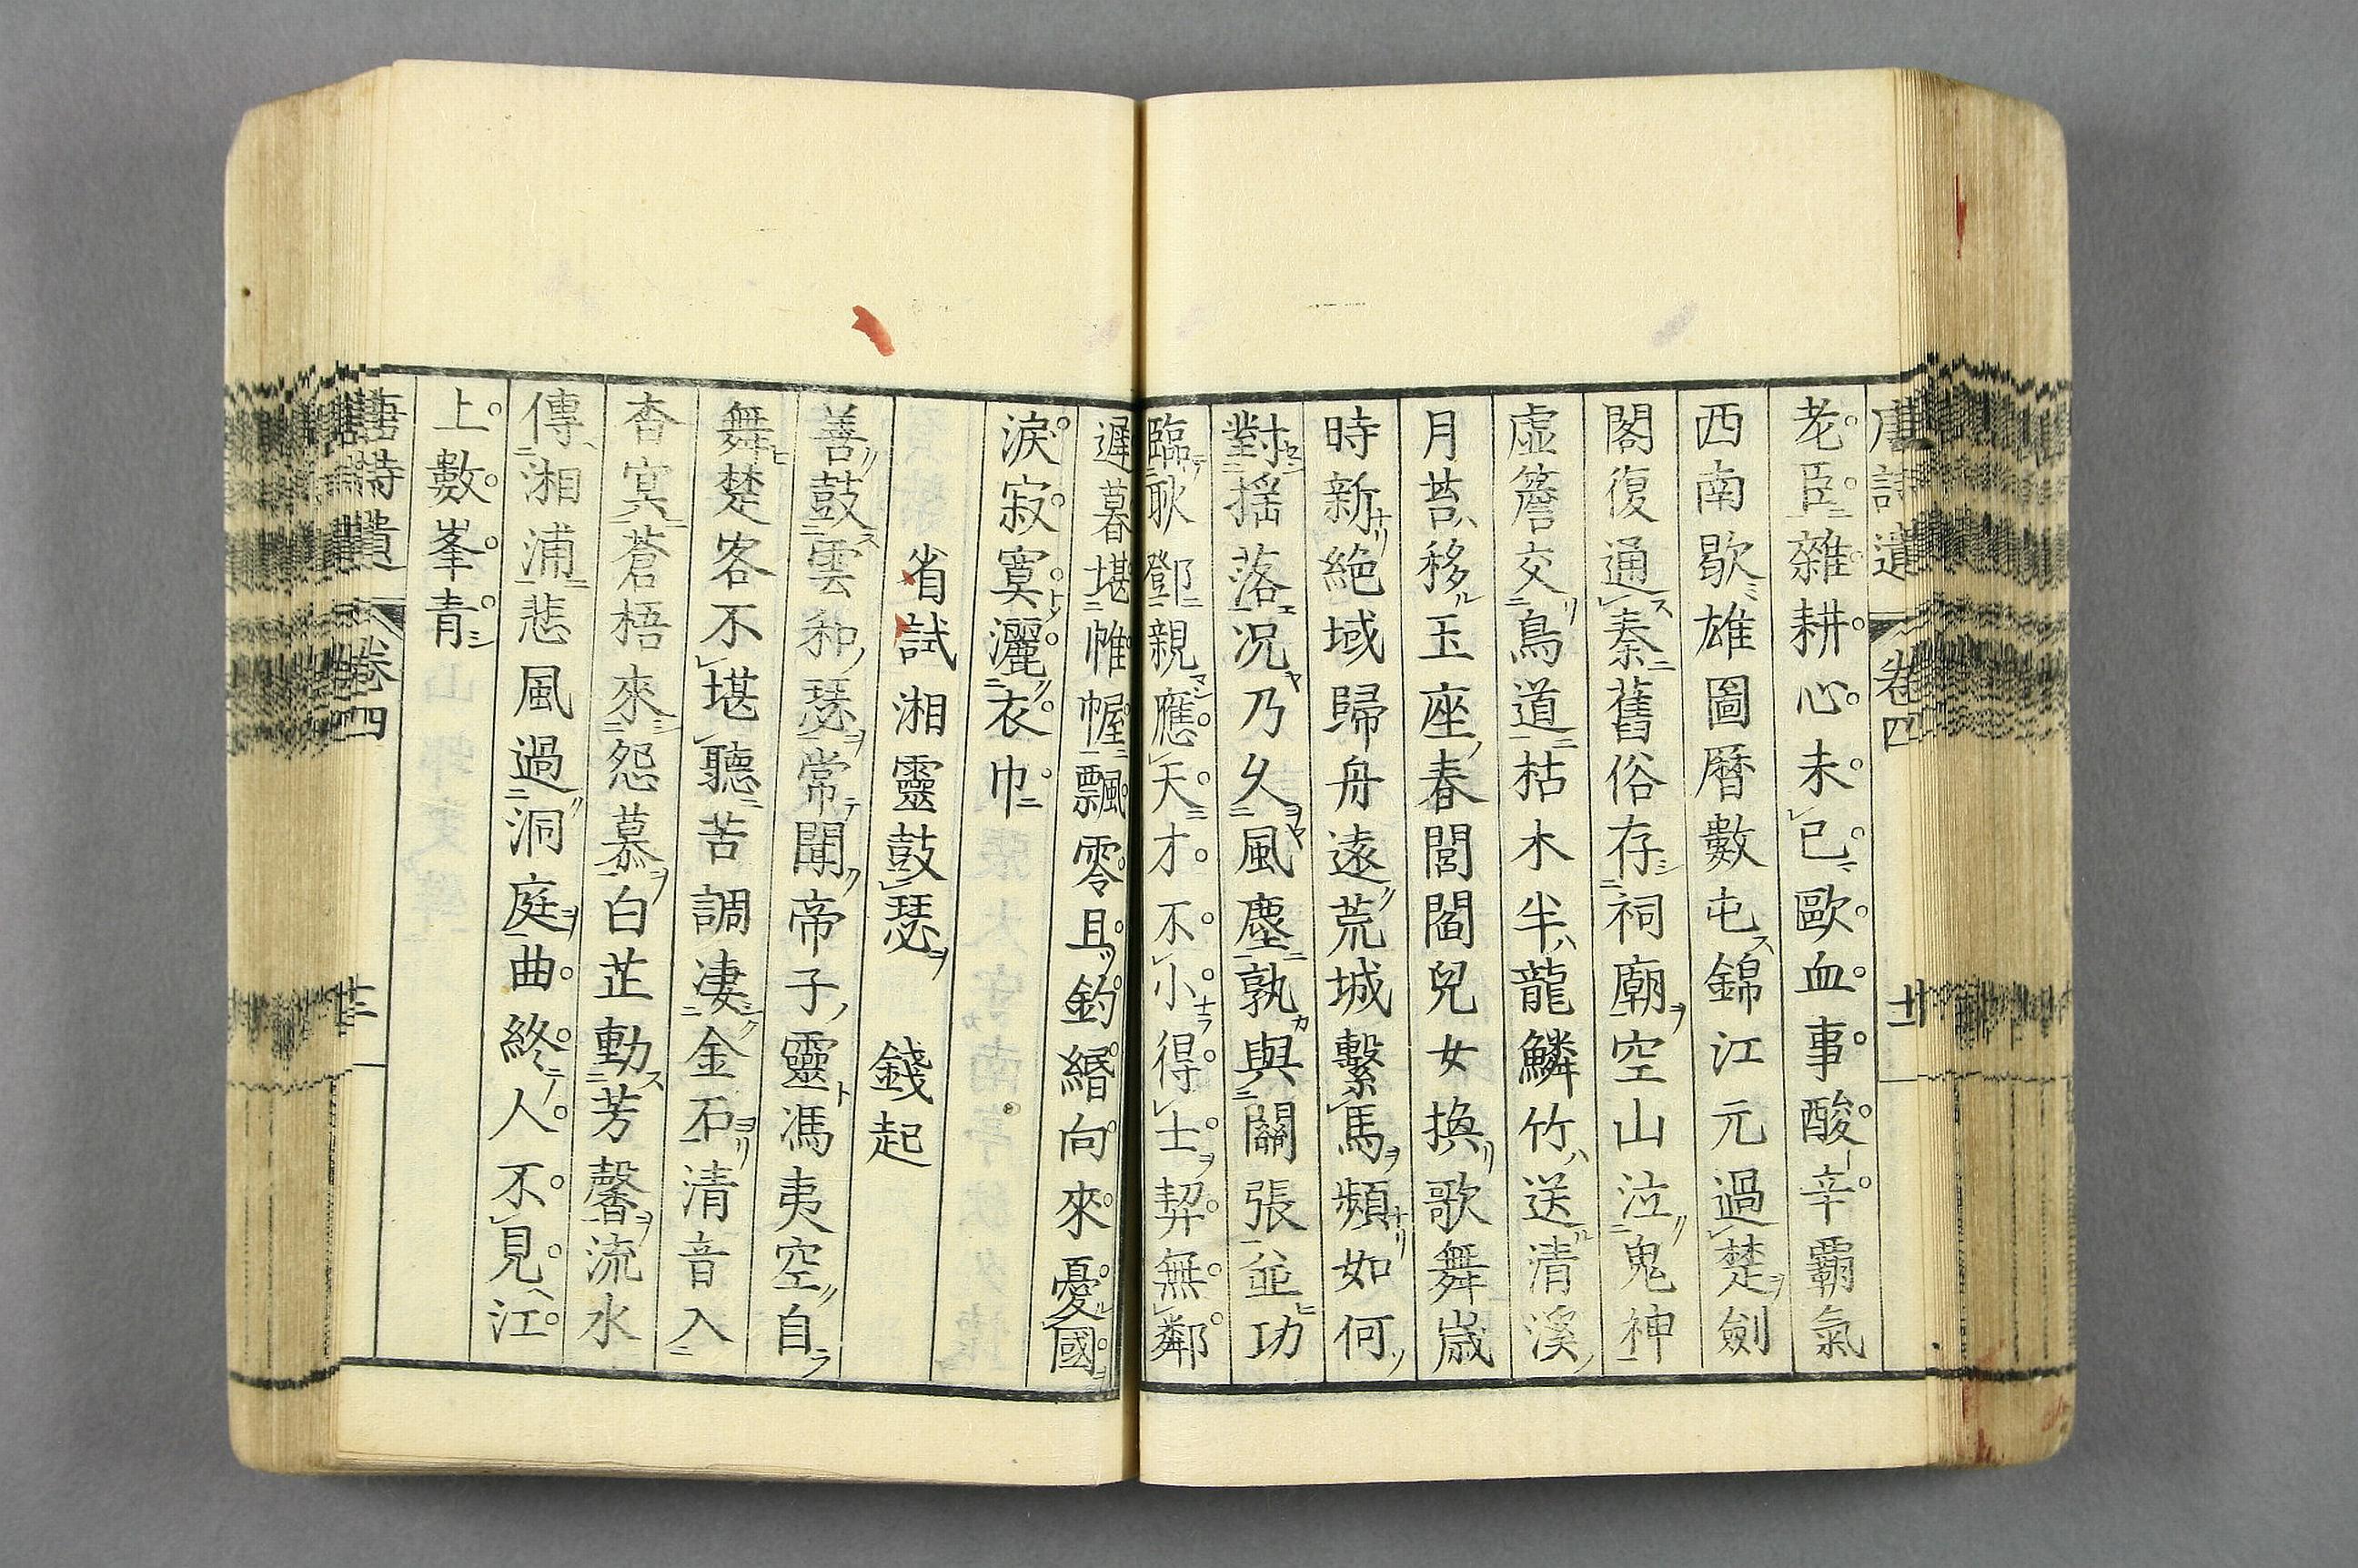 唐詩遺 卷四 廿二
老臣雜耕心未已歐血事酸辛霸氣
西南歇雄圖曆數屯錦江元過楚劍
閣復通秦舊俗存祠廟空山泣鬼神
虛簷交鳥道枯木半龍鱗竹送清溪
月苔移玉座春閭閻兒女換歌舞歲
時新絕域歸舟遠荒城繫馬頻如何
對揺落况乃久風塵孰與關張並功
臨耿鄧親應天才不小得士契無鄰
遲暮堪帷幄飄零且釣緡向來憂國
淚寂寞灑衣巾
省試湘靈鼓瑟 錢起
善鼓雲和瑟常聞帝子靈馮夷空自
舞楚客不堪聽苦調凄金石清音入
杳冥蒼梧來怨慕白芷動芳馨流水
傳湘浦悲風過洞庭曲終人不見江
上數峯青
唐詩遺 卷四